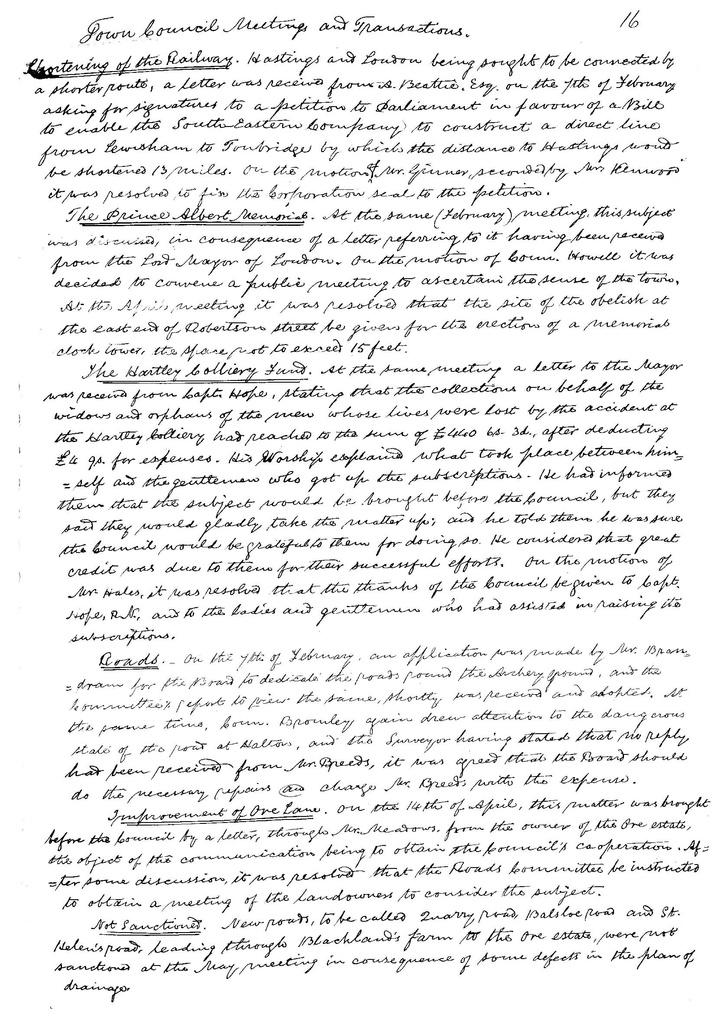 Town Council Meetings and Transactions. 16
Shortening of the Railway. Hastings and London being sought to be connected by
a shorter route, a letter was receivd from A. Beattie, Esq. on the 7th of February
asking for signatures to a petition to Parliament in favour of a Bill
to enable the South Eastern Company to construct a direct line
from Lewisham to Tonbridge by which the distance to Hastings would
be shortened 13 miles. On the motion of Mr. Ginner, seconded by Mr. Kenwood
it was resolved to fix the Corporation seal to the petition.
The Prince Albert Memorial. At the same (February) meeting, this subject
was discussed, in consequence of a letter referring to it having been receivd
from the Lord Mayor of London. On the motion of Coun. Howell it was
decided to convene a public meeting to ascertain the sense of the town.
At the April meeting it was resolved that the site of the obelisk at
the east end of Robertson street be given for the erection of a memorial
clock tower, the space not to exceed 15 feet.
The Hartley Colliery Fund. At the same meeting a letter to the Mayor
was receivd from Capt. Hope, stating that the collections on behalf of the
widows and orphans of the men whose lives were lost by the accident at
the Hartley Colliery had reached to the sum of £440 6s. 3d., after deducting
£4 9s. for expenses. His Worship explained what took place between him=
=self and the gentlemen who got up the subscriptions. He had informed
them that the subject would be brought before the Council, but they
said they would gladly take the matter up; and he told them he was sure
the Council would be grateful to them for doing so. He considered that great
credit was due to them for their successful efforts. On the motion of
Mr Hales, it was resolved that the thanks of the Council be given to Capt.
Hope, R.N., and to the ladies and gentlemen who had assisted in raising the
subscriptions.
Roads. - On the 7th of February, an application was made by Mr. Bran=
=dram for the Board to dedicate the roads round the Archery ground, and the
Committee's report to view the same, shortly was received and adopted. At
the same time, Coun. Bromley again drew attention to the dangerous
state of the road at Halton, and the Surveyor having stated that no reply
had been received from Mr. Breeds, it was agreed that the Board should
do the necessary repairs and charge Mr. Breeds with the expense.
Improvement of Ore Lane. On the 14th of April, this matter was brought
before the Council by a letter, through Mr. Meadows, from the owner of the Ore estate,
the object of the communication being to obtain the Council's co-operation. Af=
=ter some discussion, it was resolved that the Roads Committee be instructed
to obtain a meeting of the landowners to consider the subject.
Not Sanctioned. New roads, to be called Quarry road, Balsloe road and St.
Helen's road, leading through Blackland's farm to the Ore estate, were not
sanctioned at the May meeting in consequence of some defects in the plan of
drainage